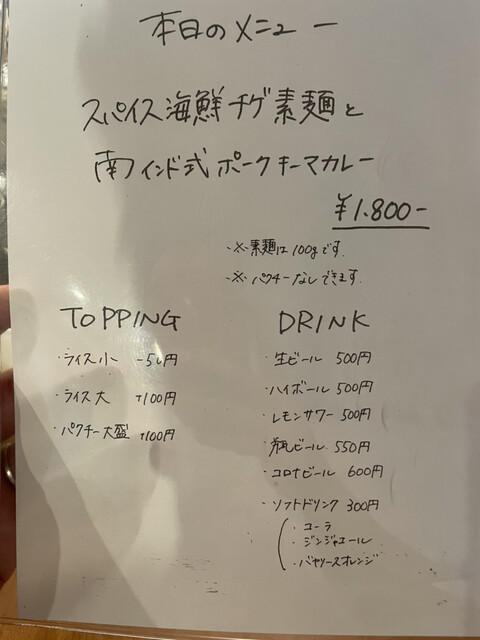 本日のメニュー
スパイス海鮮チゲ素麺と
南インド式ポークキーマカレー
¥1.800-
※素麺は100gです.
※パクチーなしできます.
TOPPING
・ライス小 -50円
・ライス大 +100円
・パクチー大盛 +100円
DRINK
・生ビール 500円
・ハイボール 500円
・レモンサワー 500円
・瓶ビール 550円
・コロナビール 600円
・ソフトドリンク 300円
・コーラ
・ジンジャエール
・バヤリースオレンジ